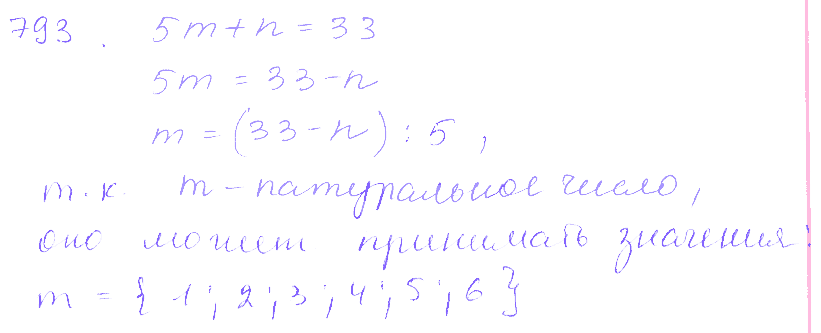 793. 5m + n = 33
5m = 33 - n
m = (33 - n) : 5,
т.к. m - натуральное число,
оно может принимать значения:
m = { 1; 2; 3; 4; 5; 6 }